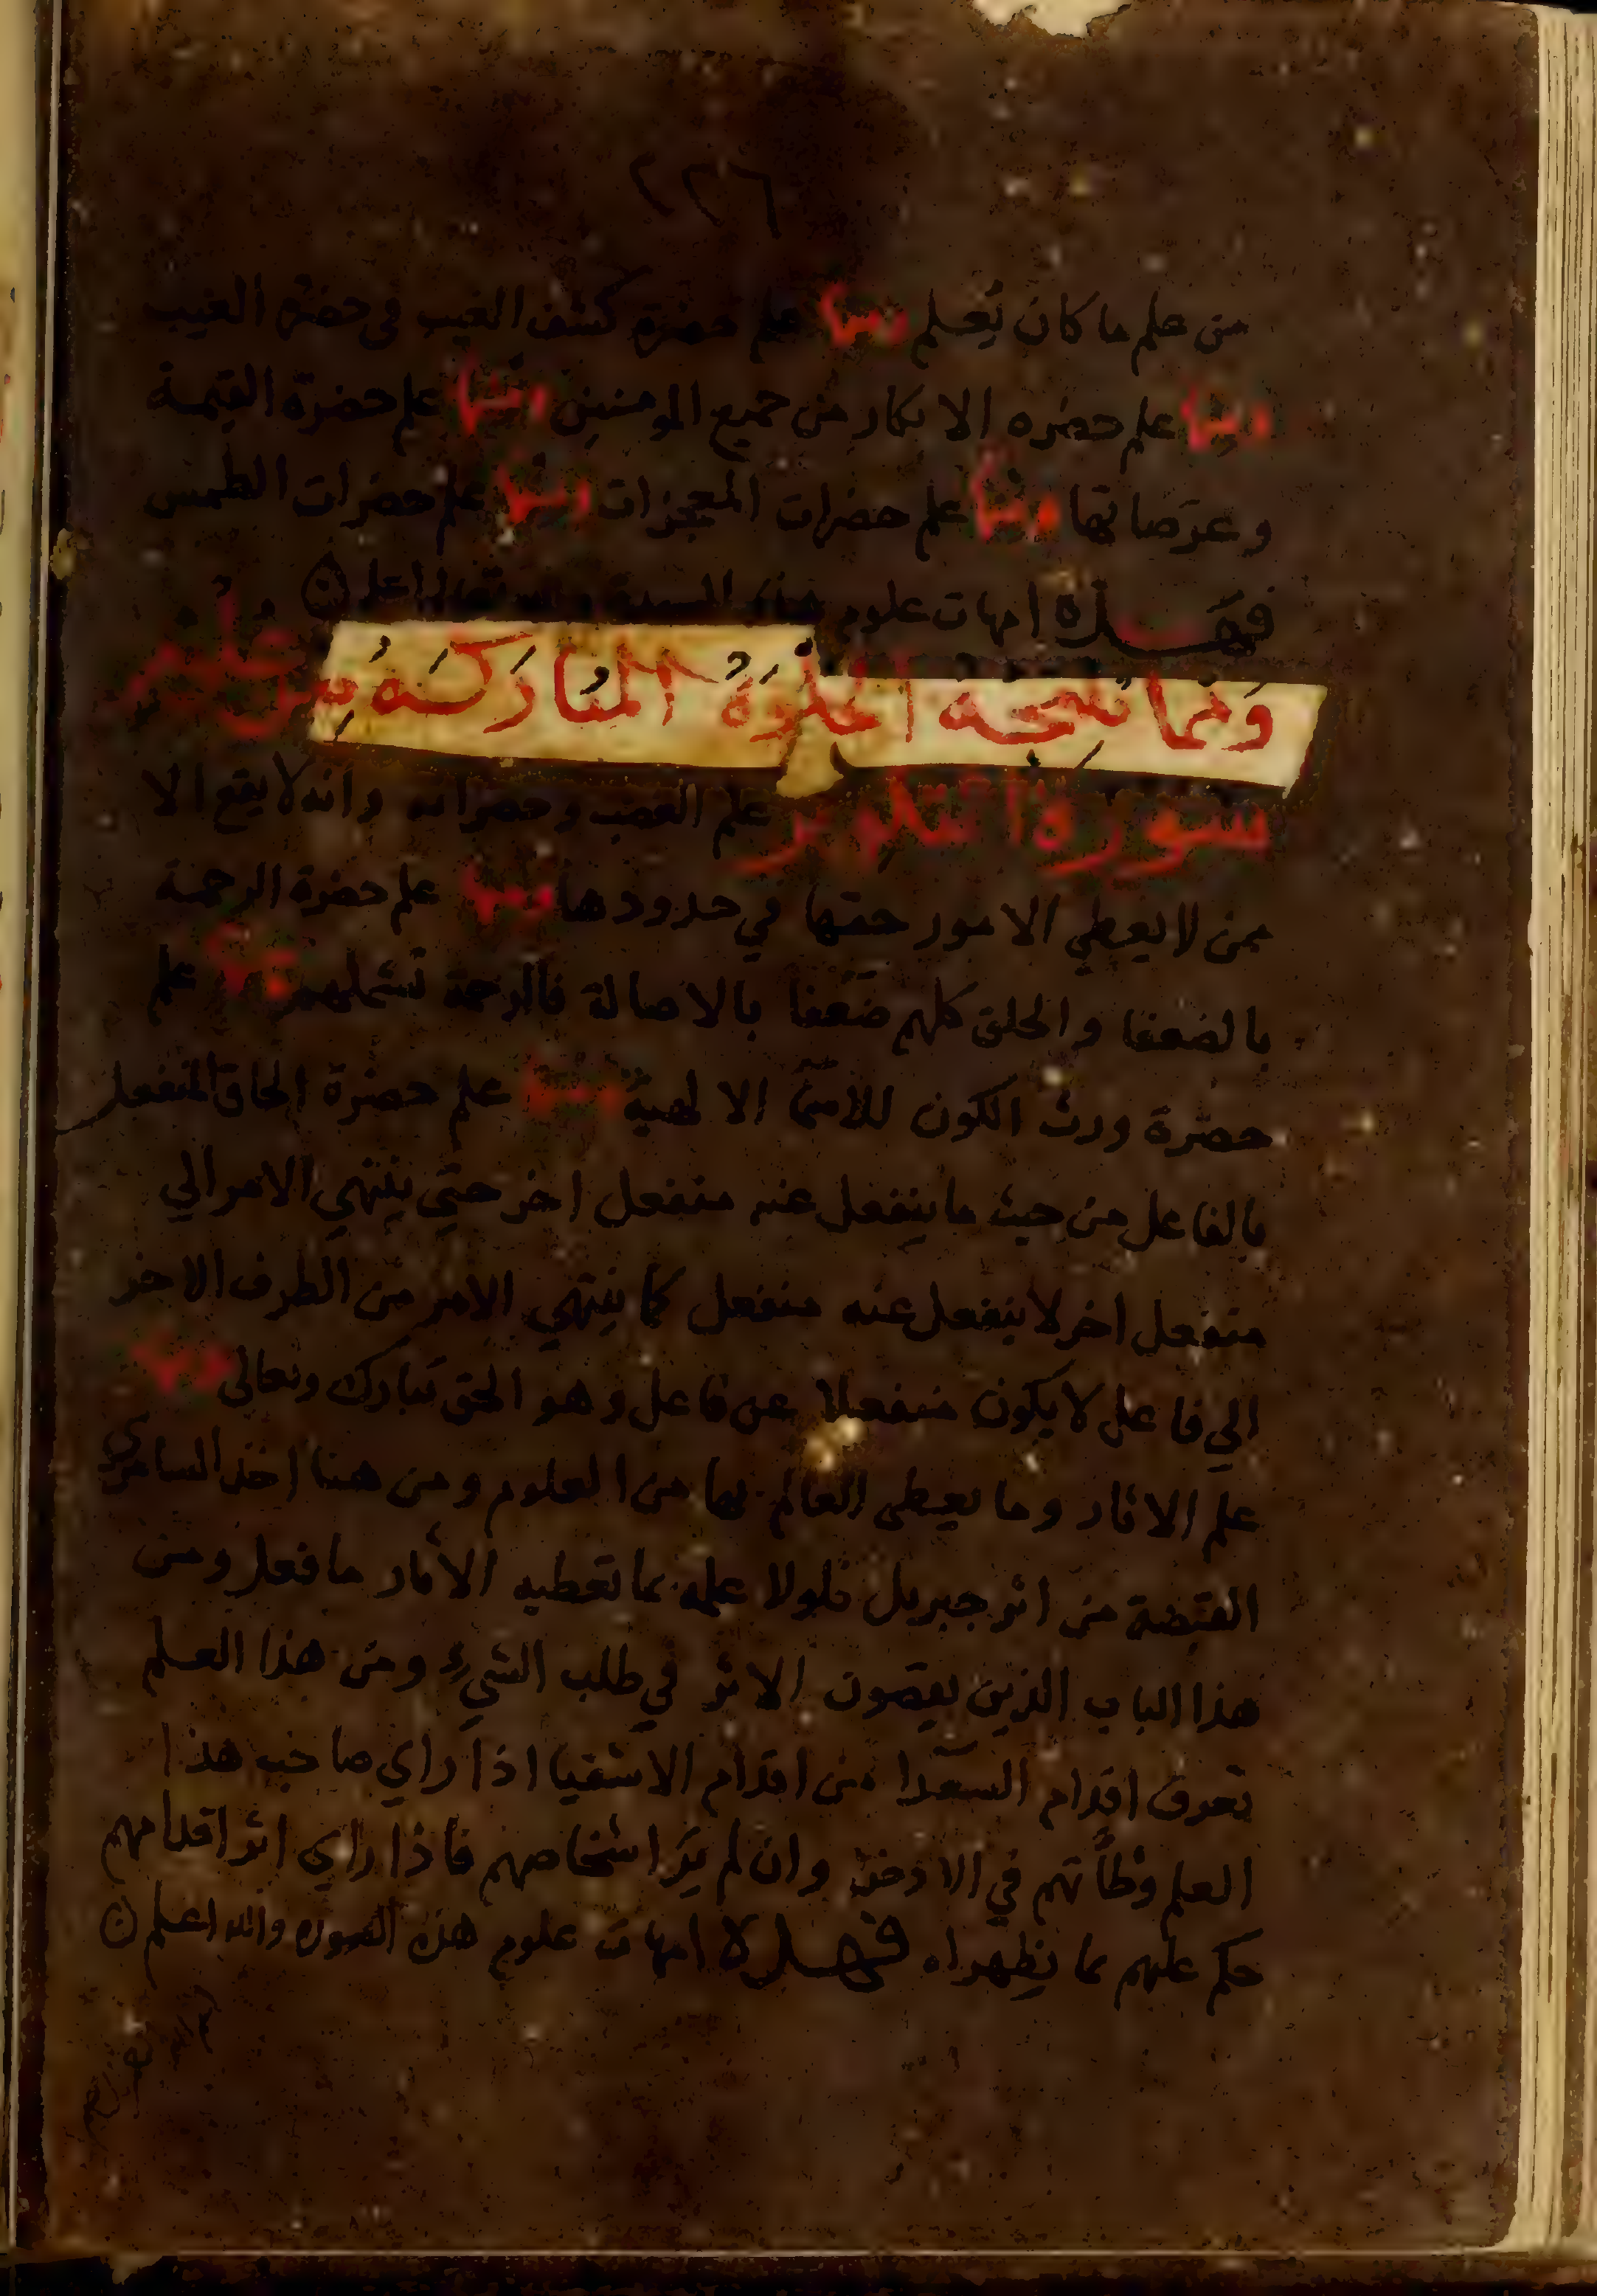 ٢٢٦
من علم ما كان يُعلم ومنها علم حضرة كشف الغيب في حضرة الغيب
ومنها علم حضره الانكار من جميع المومنين ومنها علم حضرة القيمة
وعرَصاتها ومنها علم حضرات المعجزات ومنها علم حضرات الطمس
فهـذه امهات علوم هذه السورة والله تعالى اعلم
وَمما تنتجه الخلوَةُ المُبَارَكَه مِن علوُم
سورة التكوير علم الغضب وحضراته وانه لا يقع الا
ممن لا يعطي الامور حقها في حدودها ومنها علم حضرة الرحمة
بالضعفا والخلق كلهم ضعفا بالاصالة فالرحمة تشملهم ومنها علم
حضرة ورث الكون للاسمآ الالهية ومنها علم حضرة الحاق المنفعل
بالفاعل من حيث ما ينفعل عنه منفعل اخر حتي ينتهي الامر الي
منفعل اخر لا ينفعل عنه منفعل كما ينتهي الامر من الطرف الاخر
الي فاعل لا يكون منفعلا عن فاعل وهو الحق تبارك وتعالى ومنها
علم الاثار وما يعطي العالم بها من العلوم ومن هنا اخذ السامري
القبضة من اثر جبريل فلولا علمه بما تعطيه الاثار ما فعل ومن
هذا الباب الذين يقصون الاثر في طلب الشيء ومن هذا العلم
تعرف اقدام السعدا من اقدام الاشقيا اذا راي صاحب هذا
العلم وطأتهم في الارض وان لم يَرَ اشخاصهم فاذا راي اثر اقدامهم
حكم عليهم بما يظهر له فهـذه امهات علوم هذه السوره والله اعلم